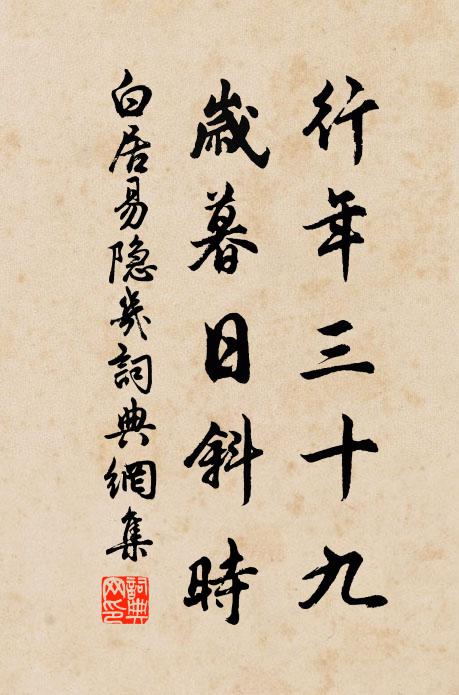 行年三十九
歲暮日斜時
白居易隐几詞典網集
詞典網印